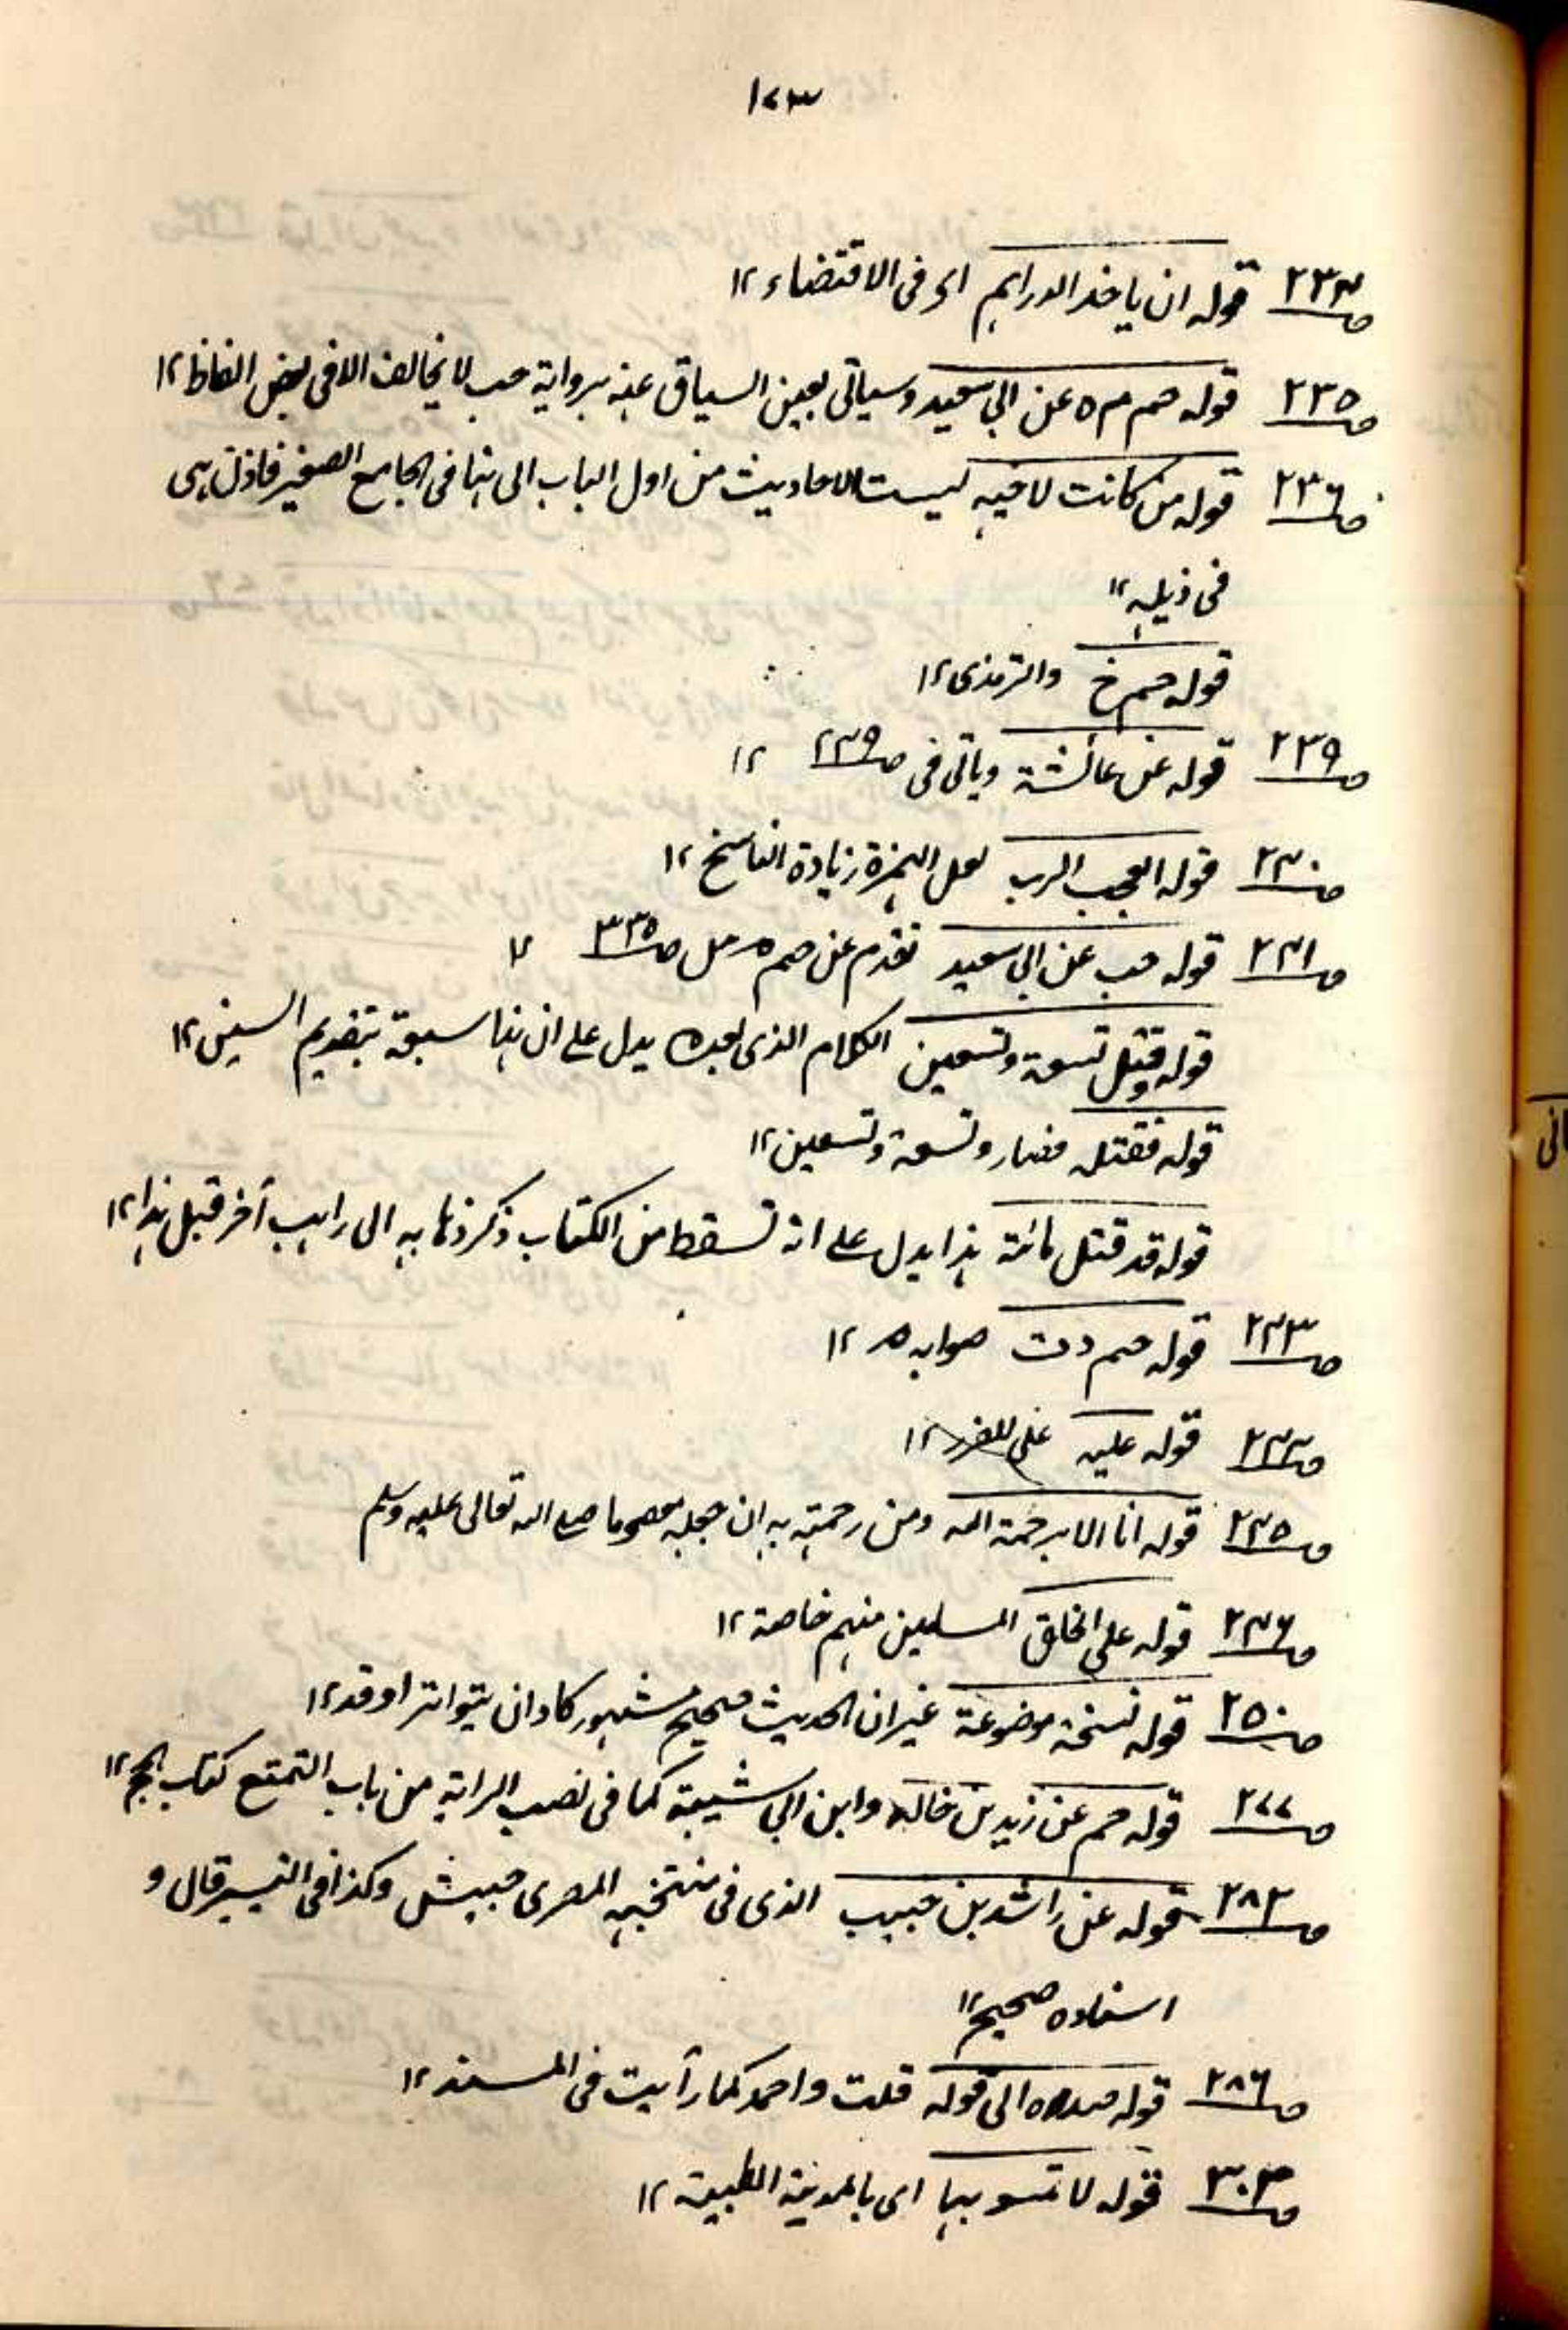 ١٧٣
صـ٢٣٤ قوله ان ياخذ الدراہم ای فی الاقتضاء ١٢
صـ٢٣٥ قوله حم م ہ عن ابی سعید وسیاتی بعین السیاق عنہ بروایة حب لا یخالف الا فی بعض الفاظ ١٢
صـ٢٣٦ قوله من کانت لاخیہ لیست الاحادیث من اول الباب الی ہنا فی الجامع الصغیر فاذن ہی
فی ذیلہ ١٢
قوله حم خ والترمذی ١٢
صـ٢٣٩ قوله عن عائشة ویاتی فی صـ٢٤٩ ١٢
صـ٢٤٠ قوله العجب الرب لعل الہمزة زیادة الناسخ ١٢
صـ٢٤١ قوله حب عن ابی سعید تقدم عن حم م ہ صـ٣٣٥ ١٢
قوله وقتل تسعة وتسعین الکلام الذی بعدہ یدل علی ان ہنا سبعة بتقدیم السین ١٢
قوله فقتلہ فصار وتسعة وتسعین ١٢
قوله قد قتل مائة ہذا یدل علی انہ تسقط من الکتاب ذکر ذہابہ الی راہب آخر قبل ہذا ١٢
صـ٢٤٣ قوله حم د ت صوابہ ہ ١٢
صـ٢٤٤ قوله علیہ علی ١٢
صـ٢٤٥ قوله انا الا برحمة اللہ ومن رحمتہ بہ ان جعلہ معصوما صلی اللہ تعالی علیہ وسلم
صـ٢٤٦ قوله علی الخلق المسلمین منہم خاصة ١٢
صـ٢٥٠ قوله نسخة موضوعة غیر ان الحدیث صحیح مشہور کاد ان یتواتر او قد ١٢
صـ٢٧٧ قوله حم عن زید بن خالد وابن ابی شیبة کما فی نصب الرایة من باب التمتع کتاب الحج ١٢
صـ٢٨٢ قوله عن راشد بن حبیب الذی فی منتخبہ المصری حبیش وکذا فی التیسیر قال و
اسنادہ صحیح ١٢
صـ٢٨٦ قوله الی قوله قلت واحمد کما رأیت فی المسند ١٢
صـ٣٠٣ قوله لا بہا ای بالمدینة الطیبة ١٢